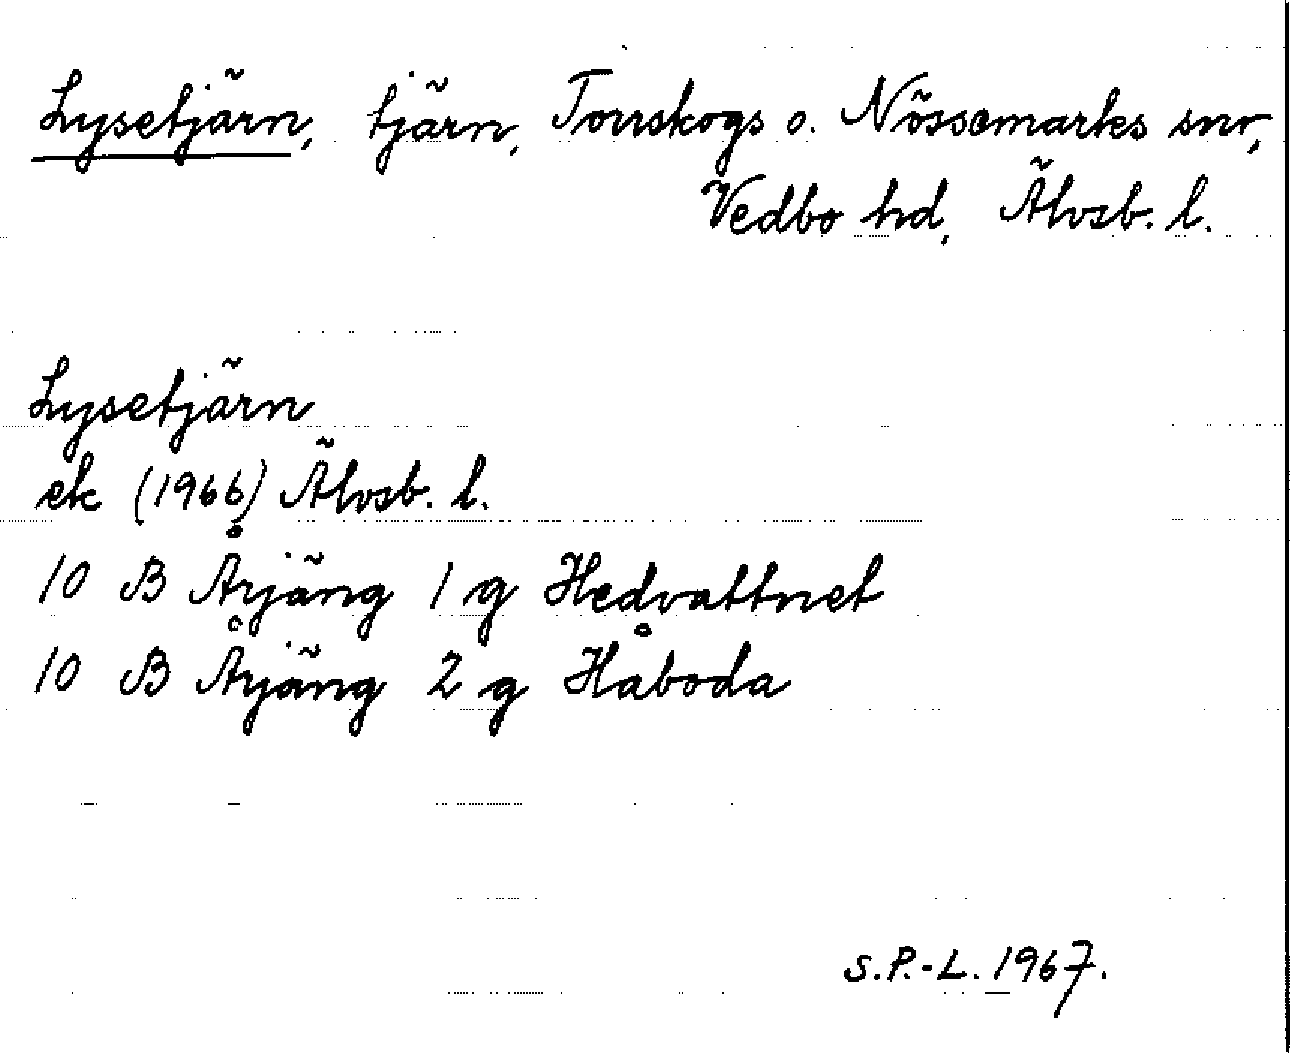 Lysetjärn, tjärn, Torrskogs o. Nössemarks snr,
Vedbo hd, Älvsb. l.
Lysetjärn
ek (1966) Älvsb. l.
10 B Årjäng 1 g Hedvattnet
10 B Årjäng 2 g Håboda
S.P.-L. 1967.